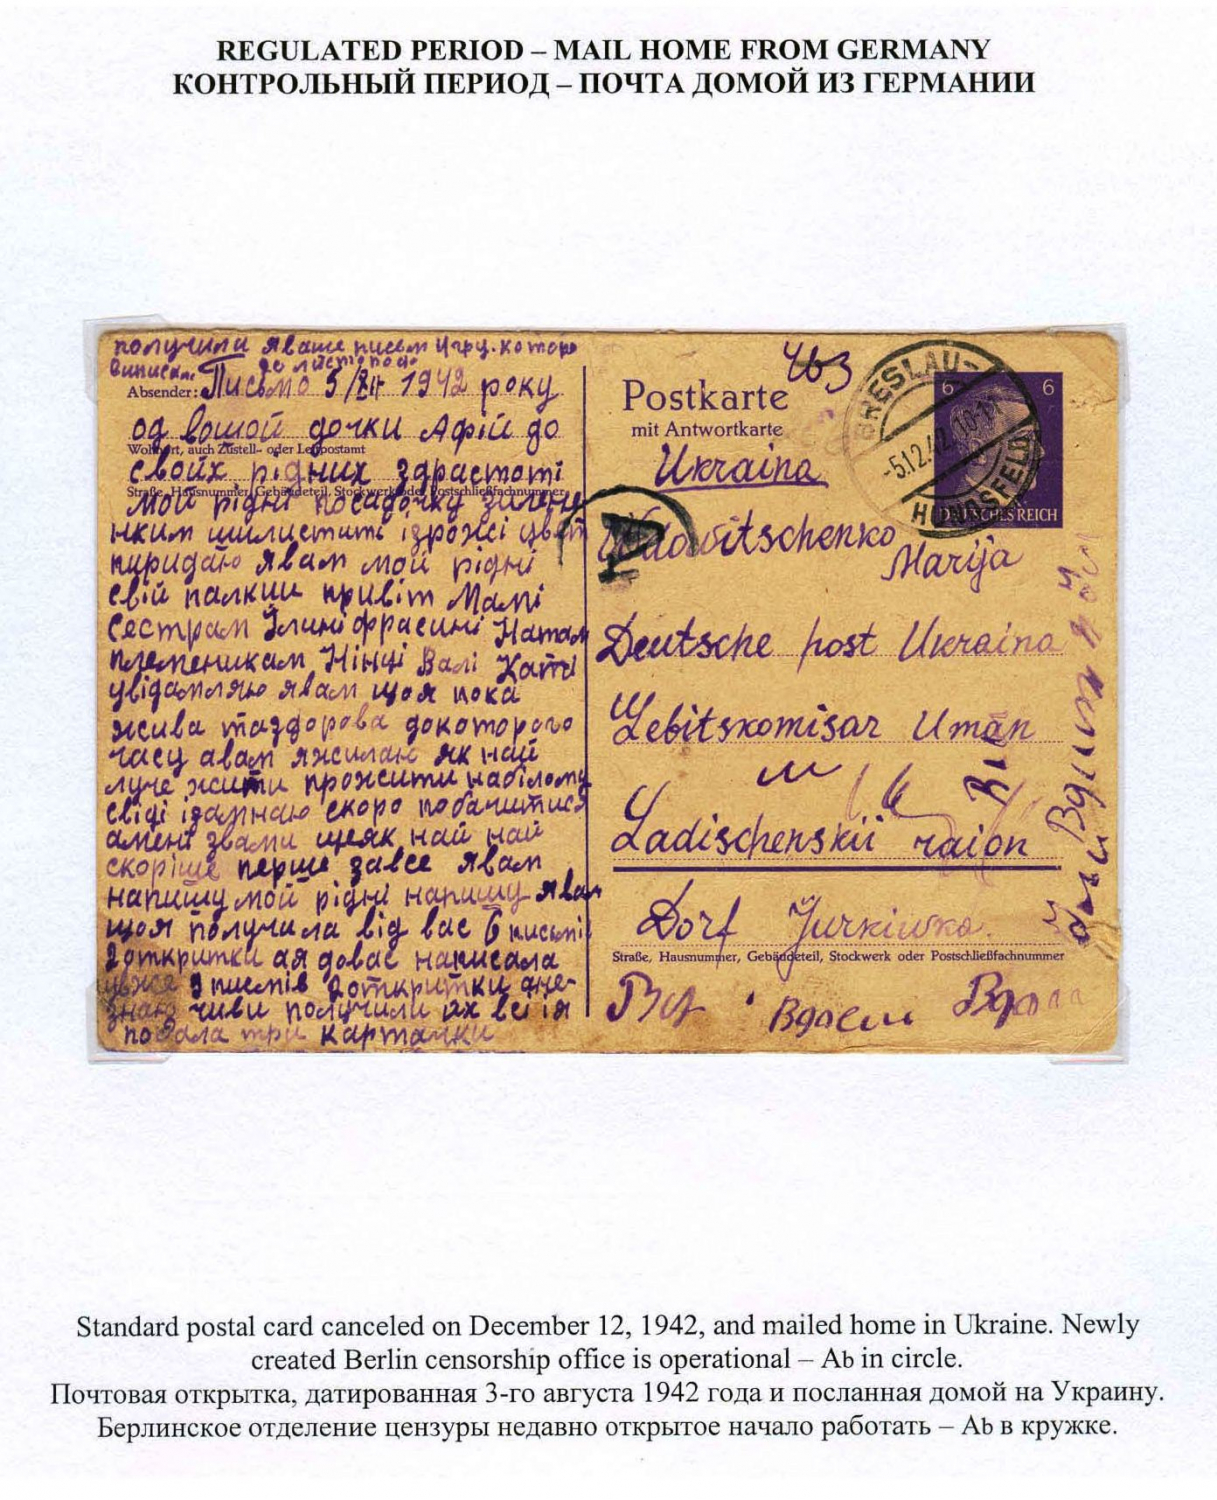 REGULATED PERIOD – MAIL HOME FROM GERMANY
КОНТРОЛЬНЫЙ ПЕРИОД – ПОЧТА ДОМОЙ ИЗ ГЕРМАНИИ
получила яваше письм
Absender: Письмо 5/XII 1942 року
од вошой дочки Афій до
Wohnort, auch Zustell- oder Leitpostamt
своїх рідних здрастоті
Straße, Hausnummer, Gebäudeteil, Stockwerk oder Postschließfachnummer
мої рідні посадочку зилене
нким шилистити ірожі цвіт
пиридаю явам мої рідні
свій палкий привіт Мамі
сестрам Наташ
племеникам Нінці Валі Каті
увідамляю явам щоя пока
жива таздорова докоторого
часу авам яжилаю як най
луче жити прожити набілому
світі ідамнаю скоро побачитися
амені звами щеяк най най
скоріше перше завсе явам
напишу мої рідні напишу явам
щоя получила від вас 6 письмі
2 открытки ая довас написала
уже 9 писмів 2 откритки оне-
знаю чиви получили их всі ія
подала три карточки
463
Postkarte
mit Antwortkarte
Ukraina
BRESLAU-
-5.12.42.10-11
HUNDSFELD
6 6
DEUTSCHES REICH
Wdowitschenko
Marija
Deutsche post Ukraina
Gebitskomisar Uman
Ladischenskii raion
Dorf Jurkiwka
Straße, Hausnummer, Gebäudeteil, Stockwerk oder Postschließfachnummer
Standard postal card canceled on December 12, 1942, and mailed home in Ukraine. Newly
created Berlin censorship office is operational – Ab in circle.
Почтовая открытка, датированная 3-го августа 1942 года и посланная домой на Украину.
Берлинское отделение цензуры недавно открытое начало работать – Ab в кружке.